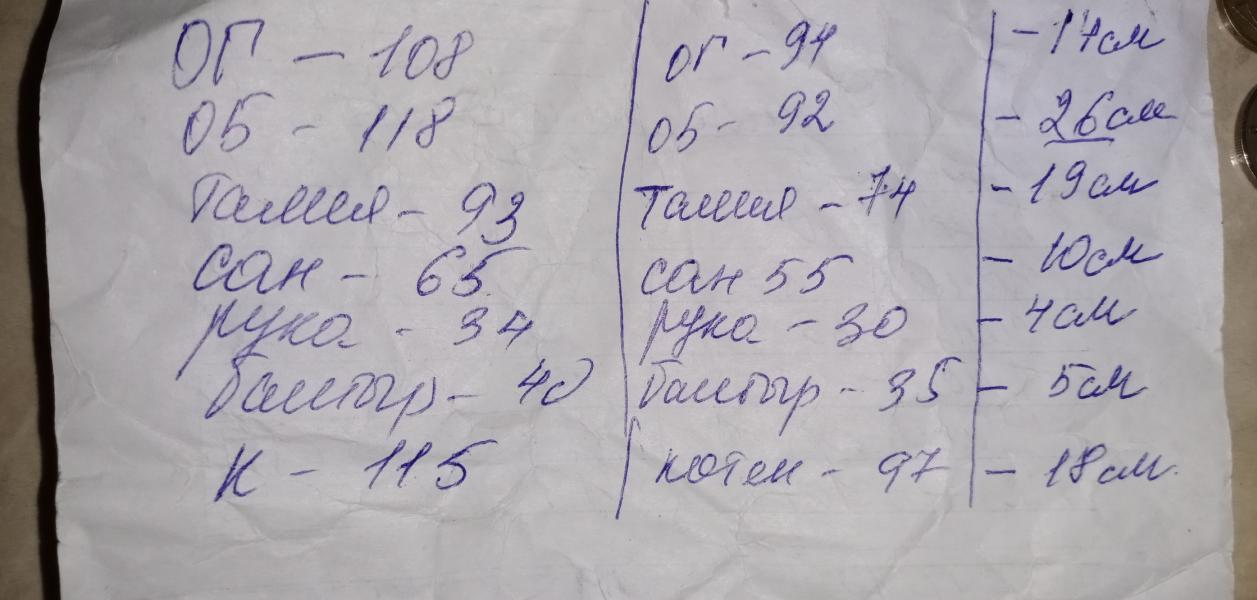 ОГ - 108 ОГ - 94 - 14см
ОБ - 118 ОБ - 92 - 26см
Талия - 93 Талия - 74 - 19см
сан - 65 сан 55 - 10см
рука - 34 рука - 30 - 4см
балтыр - 40 балтыр - 35 - 5см
К - 115 котен - 97 - 18см.